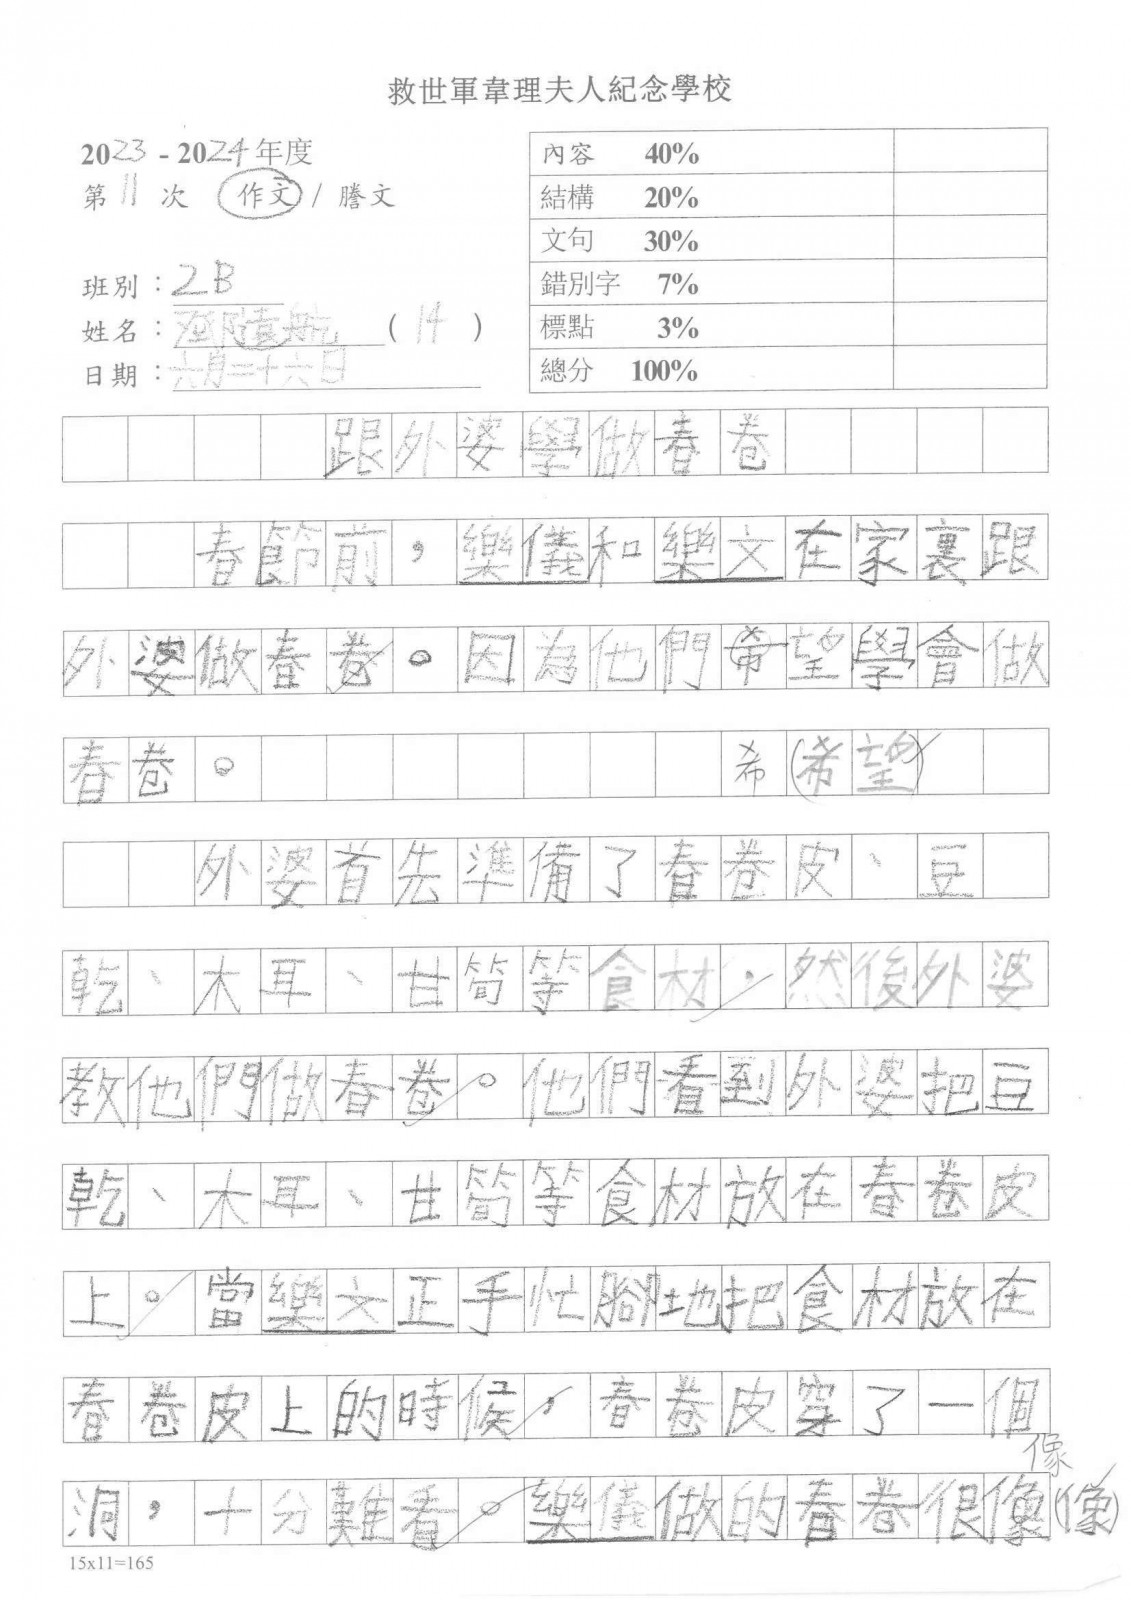 救世軍韋理夫人紀念學校
2023 - 2024年度
第11次 作文 / 謄文
班別：2B
姓名： (14)
日期：六月二十六日
內容 40%
結構 20%
文句 30%
錯別字 7%
標點 3%
總分 100%
跟外婆學做春卷
春節前，樂儀和樂文在家裏跟
外婆做春卷。因為他們希望學會做
春卷。 希(希望)
外婆首先準備了春卷皮、豆
乾、木耳、甘筍等食材，然後外婆
教他們做春卷。他們看到外婆把豆
乾、木耳、甘筍等食材放在春卷皮
上。當樂文正手忙腳地把食材放在
春卷皮上的時候，春卷皮穿了一個
洞，十分難看。樂儀做的春卷很像(像)
像
15x11=165